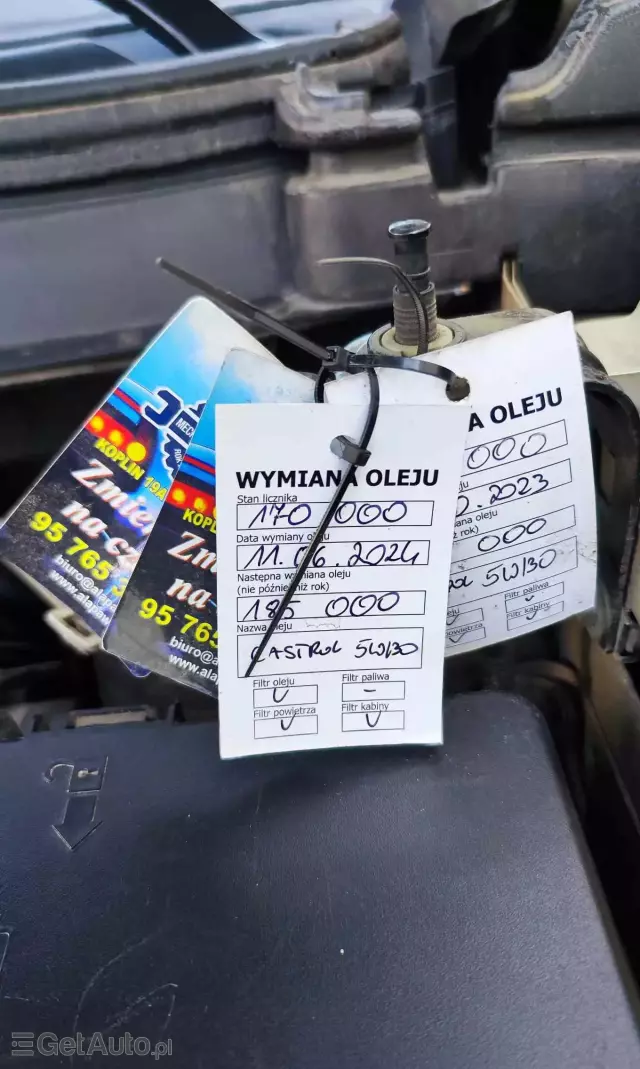 WYMIANA OLEJU
Stan licznika
170 000
Data wymiany oleju
11.06.2024
Następna wymiana oleju
(nie później niż rok)
185 000
Nazwa oleju
CASTROL 5W/30
Filtr oleju
Filtr paliwa
-
Filtr powietrza
Filtr kabiny
A OLEJU
000
0.2023
ana oleju
ż rok)
000
5W/30
Filtr paliwa
Filtr kabiny
KOPLIN 19A
Zmie
na cz
95 765
biuro@ala
www.alapo
KOPL
Zm
na
95 765
biuro@a
www.al
GetAuto.pl